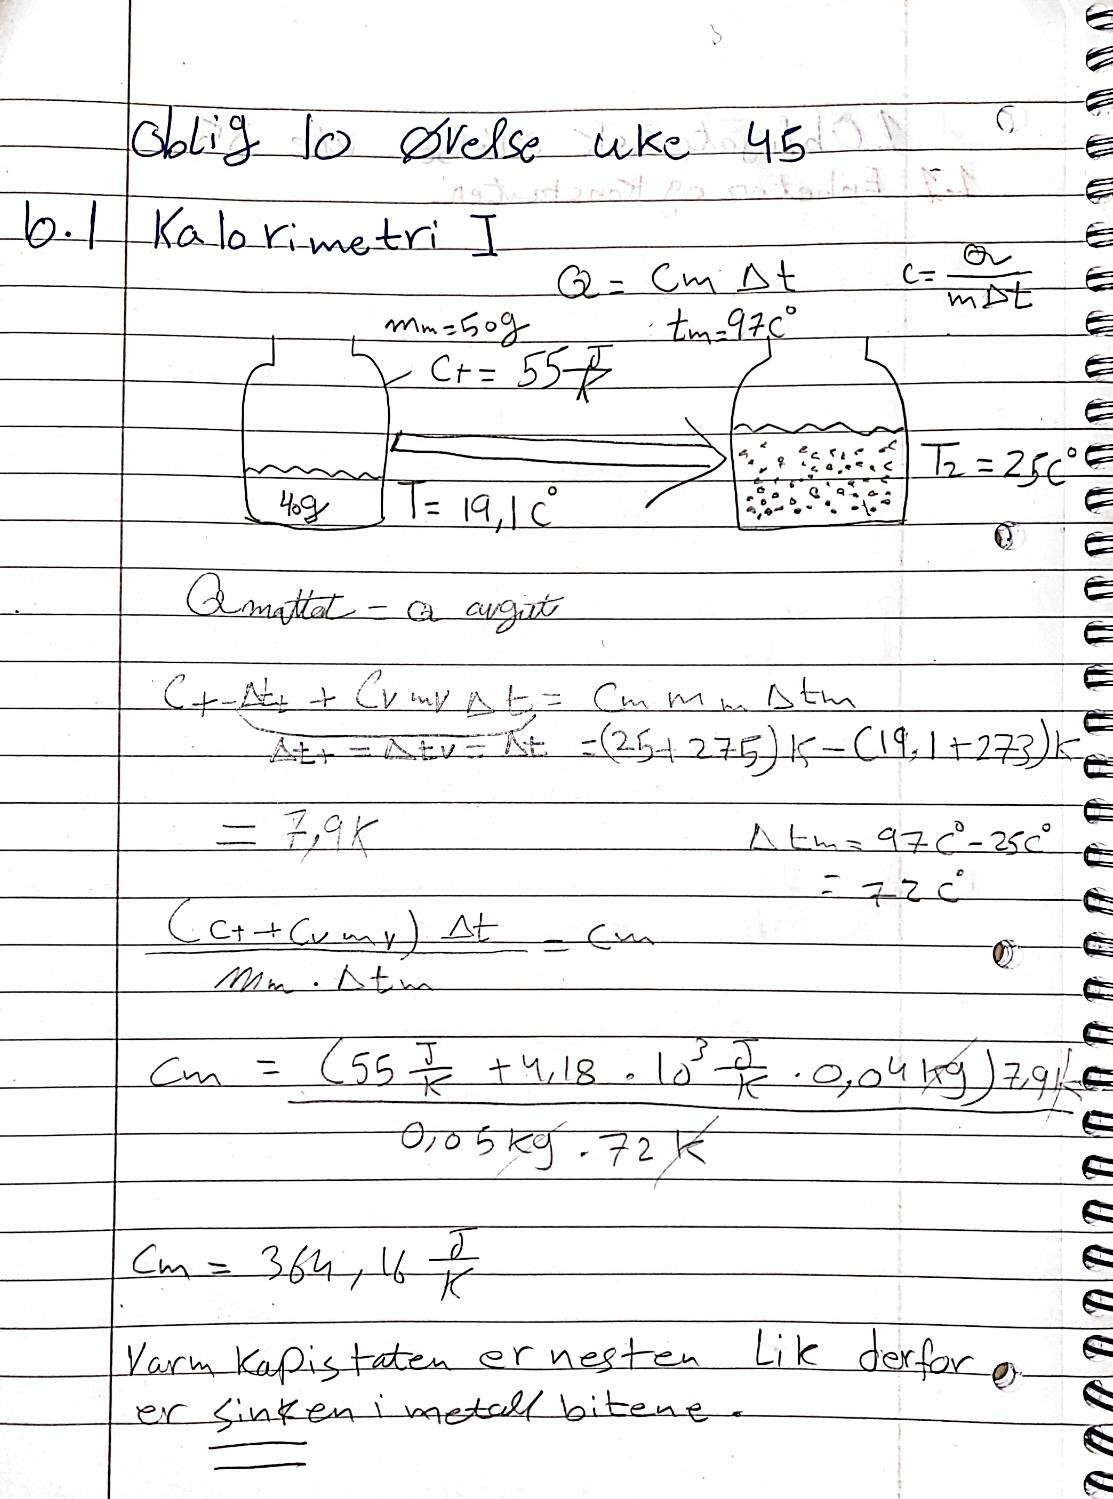 Oblig 10 Øvelse uke 45
6.1 Kalorimetri I
Q = Cm Δt
c = Q / mΔt
mm=50g
tm=97C°
Ct = 55 J/K
40g
T = 19,1C°
T2 = 25C°
Qmottat = Q avgitt
Ct Δtt + Cv mv Δt = Cm mm Δtm
Δtt = Δtv = Δt = (25+275)K - (19,1+273)K
= 7,9K
Δtm = 97C° - 25C°
= 72C°
(Ct + Cv mv) Δt / mm · Δtm = Cm
Cm = (55 J/K + 4,18 · 10³ J/K · 0,04kg) 7,9K / 0,05kg · 72K
Cm = 364,16 J/K
Varm Kapistaten er nesten Lik derfor
er sinken i metall bitene.